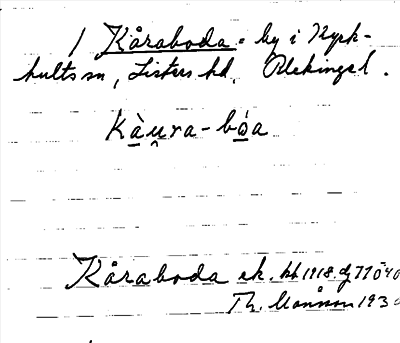 1 Kåraboda = by i Kyrk-
hults sn, Listers hd, Blekinge l.
Kàu̯ra-bóa
Kåraboda ek. kb 1918 dj 77 ö 40
Th. Månsson 193